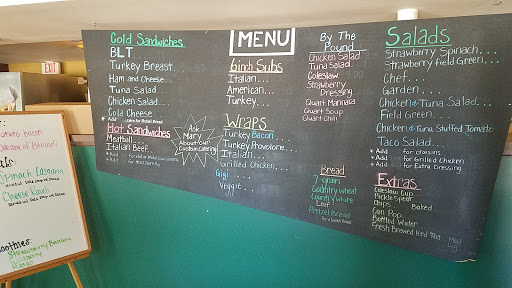 EXIT
Cold Sandwiches
BLT
Turkey Breast
Ham and Cheese
Tuna Salad
Chicken Salad
Cold Cheese
Hot Sandwiches
Meatball
Italian Beef
Ask
Mary
About our
Custom Catering
MENU
6 inch Subs
Italian...
American...
Turkey...
Wraps
Turkey Bacon
Turkey Provolone
Italian
Grilled Chicken
Gigi
Veggie
By The
Pound
Chicken Salad
Tuna Salad
Coleslaw
Strawberry
Dressing
Quart Marinara
Quart Soup
Quart Chili
Bread
7-grain
Country wheat
Country white
Loaf
Pretzel Bread
Salads
Strawberry Spinach...
Strawberry Field Green...
Chef...
Garden....
Chicken & Tuna Salad...
Field Green...
Chicken & Tuna Stuffed Tomato
Taco Salad...
* Add for croissins
* Add for Grilled Chicken
* Add for Extra Dressing
Extras
Coleslaw Cup
Pickle Spear
Chips Baked
Can Pop
Bottled Water
Fresh Brewed Iced Tea
bacon
Spinach Lasagna
Smoothies:
Strawberry Banana